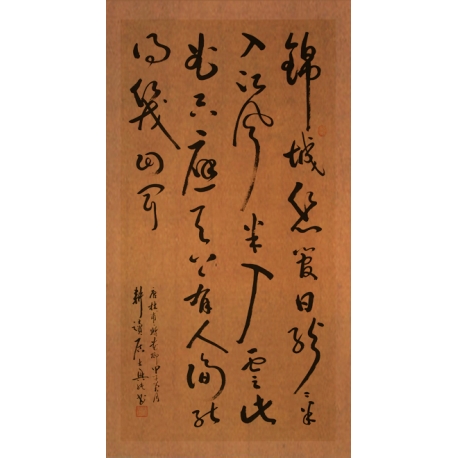 錦城絲管日紛〻半
入江風半入雲此
曲只應天上有人間能
得幾回聞
唐杜甫詩
耕讀居士